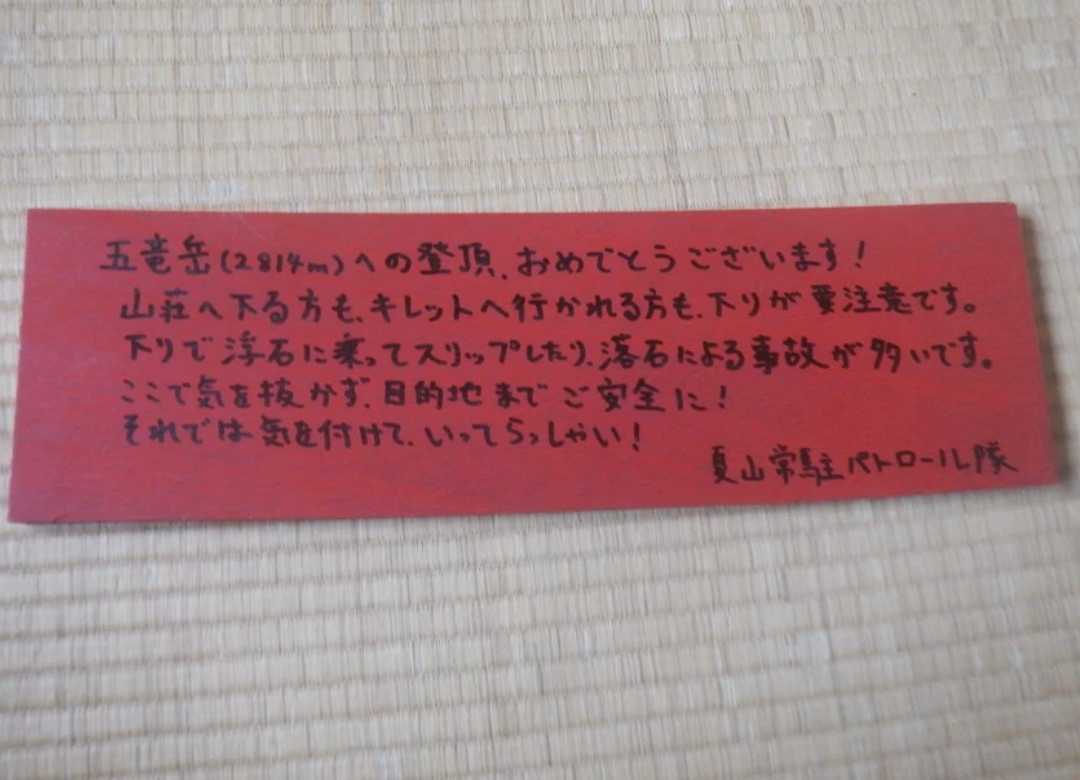 五竜岳(2814m)への登頂、おめでとうございます!
山荘へ下る方も、キレットへ行かれる方も、下りが要注意です。
下りで浮石に乗ってスリップしたり、落石による事故が多いです。
ここで気を抜かず、目的地までご安全に!
それでは気を付けて、いってらっしゃい!
夏山常駐パトロール隊